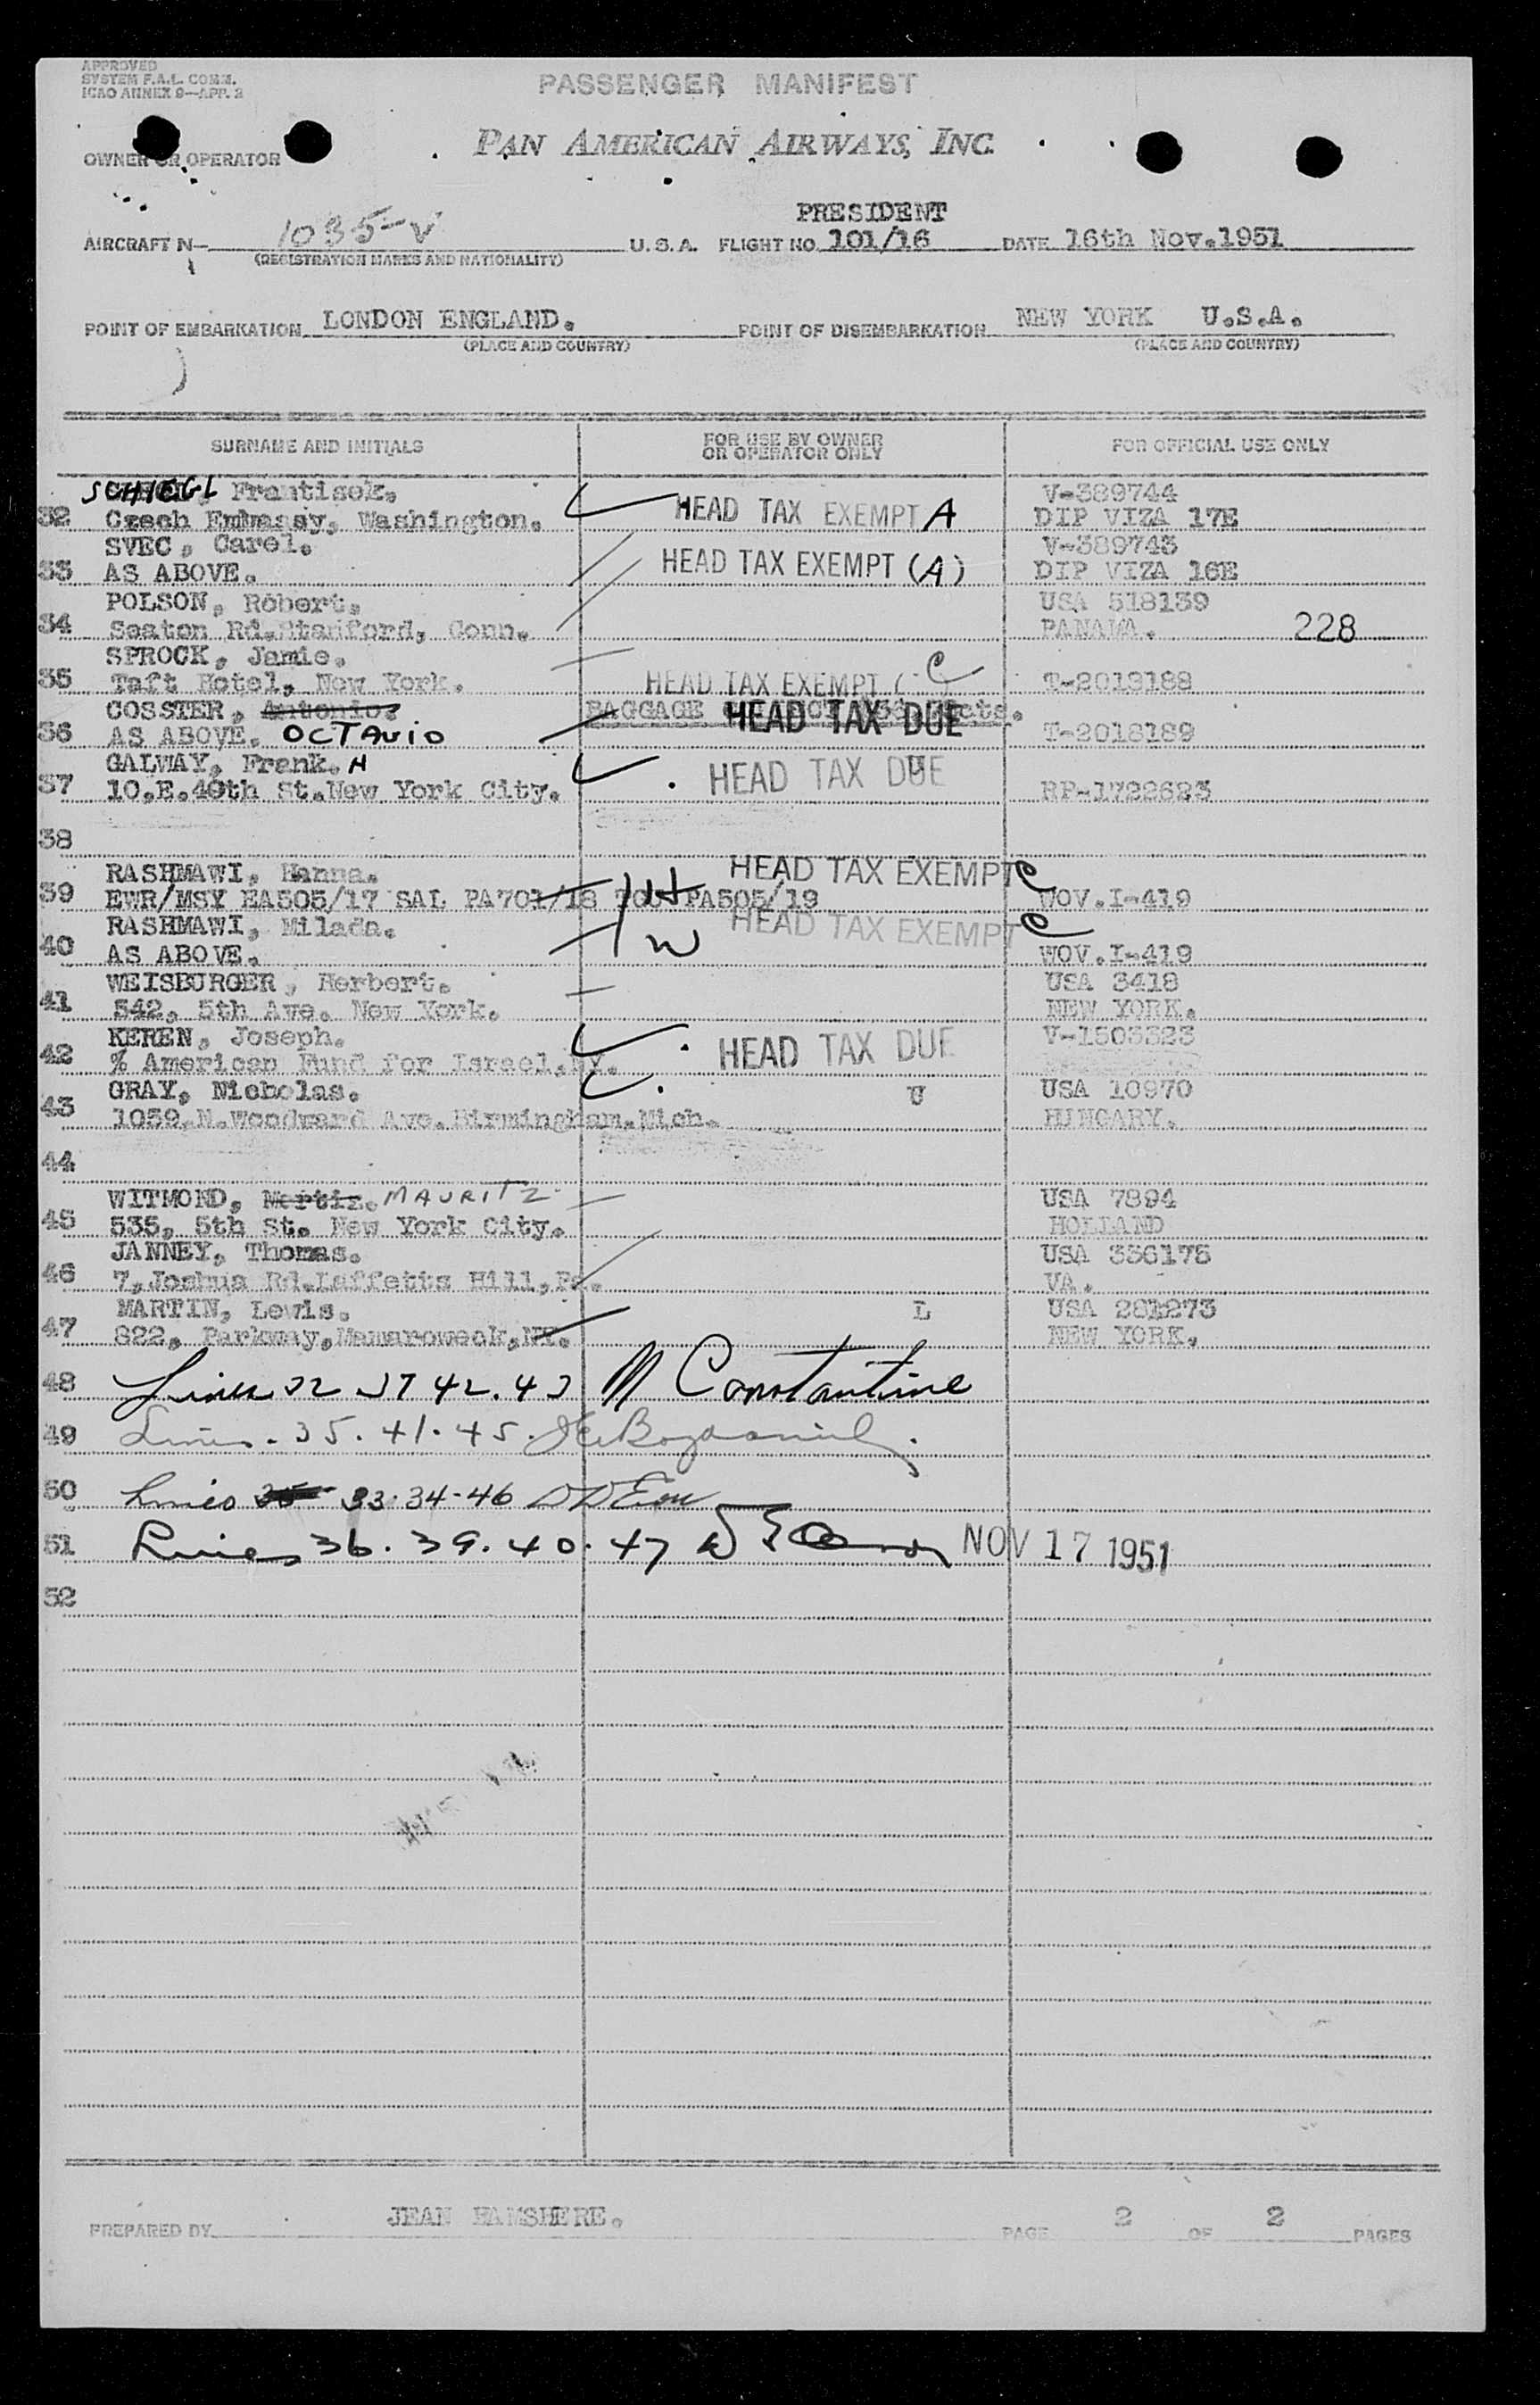 APPROVED
SYSTEM F.A.L. COMM.
ICAO ANNEX 9—APP. 2
PASSENGER MANIFEST
OWNER OR OPERATOR
PAN AMERICAN AIRWAYS, INC.
PRESIDENT
AIRCRAFT N— 1035-V U.S.A. FLIGHT NO. 101/16 DATE 16th Nov.1951
(REGISTRATION MARKS AND NATIONALITY)
POINT OF EMBARKATION LONDON ENGLAND. POINT OF DISEMBARKATION NEW YORK U.S.A.
(PLACE AND COUNTRY) (PLACE AND COUNTRY)
SURNAME AND INITIALS FOR USE BY OWNER OR OPERATOR ONLY FOR OFFICIAL USE ONLY
SCHIEGL Frantisek. V-389744
32 Czech Embassy, Washington. HEAD TAX EXEMPT A DIP VIZA 17E
SVEC, Carel. V-389743
33 AS ABOVE. HEAD TAX EXEMPT (A) DIP VIZA 16E
POLSON, Robert. USA 518139
34 Seaton Rd.Stamford, Conn. PANAMA. 228
SPROCK, Jamie.
35 Taft Hotel, New York. HEAD TAX EXEMPT ( C T-2013188
COSSTER, Antonio. BAGGAGE
36 AS ABOVE. OCTAVIO HEAD TAX DUE T-2018189
GALWAY, Frank. H
37 10.E.40th St.New York City. HEAD TAX DUE RP-1722623
38
RASHMAWI, Hanna. HEAD TAX EXEMPT C
39 EWR/MSY EA505/17 SAL PA701/18 PA505/19 WOV.I-419
RASHMAWI, Milada. HEAD TAX EXEMPT C
40 AS ABOVE. W WOV.I-419
WEISBURGER, Herbert. USA 3418
41 542, 5th Ave. New York. NEW YORK.
KEREN, Joseph. V-1503323
42 % American Fund for Israel,NY. HEAD TAX DUE
GRAY, Nicholas. U USA 10970
43 1059,N.Woodward Ave.Birmingham.Mich. HUNGARY.
44
WITMOND, Mortiz. MAURITZ USA 7894
45 535, 5th St. New York City. HOLLAND
JANNEY, Thomas. USA 336175
46 7,Joshua Rd.Laffetts Hill,Pa. VA.
MARTIN, Lewis. L USA 281273
47 822, Parkway,Mamaroweck,NY. NEW YORK.
48 Lines 32 37 42. 43 M Constantine
49 Lines. 35. 41. 45.
50 Lines 33. 34-46
51 Lines 36. 39. 40. 47 NOV 17 1951
52
PREPARED BY JEAN HAMSHERE. PAGE 2 OF 2 PAGES